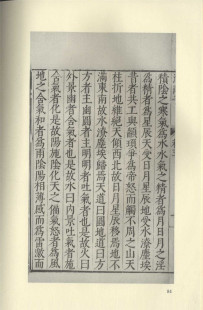 積陰之寒氣爲水水氣之精者爲月日月之淫
爲精者爲星辰天受日月星辰地受水潦塵埃
昔者共工與顓頊爭爲帝怒而觸不周之山天
柱折地維絕天傾西北故日月星辰移焉地不
滿東南故水潦塵埃歸焉天道曰圓地道曰方
方者主幽圓者主明明者吐氣者也是故火曰
外景幽者含氣者也是故水曰內景吐氣者施
含氣者化是故陽施陰化天之偏氣怒者爲風
地之含氣和者爲雨陰陽相薄感而爲雷激而